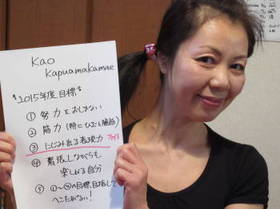 Kao
Kapuamakamae
*2015年度目標*
① 努力をおしまない
② 筋力（特にひざと腕筋）
③ にじみ出る表現力
④ 緊張しながらも
楽しめる自分
⑤ ①〜④の目標目指して
へこたれない！